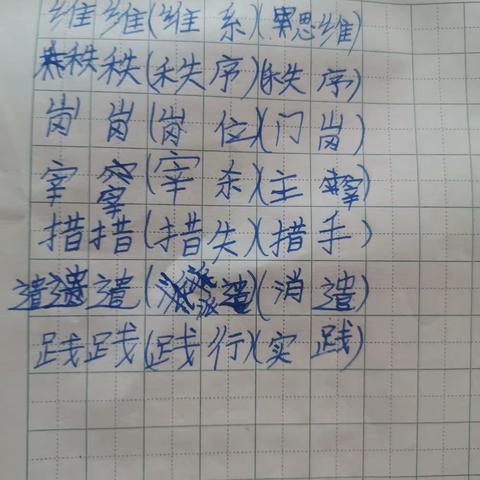 维维(维系)(思维)
秩秩(秩序)(秩序)
岗岗(岗位)(门岗)
宰宰(宰杀)(主宰)
措措(措失)(措手)
遣遣遣(派遣)(消遣)
践践(践行)(实践)